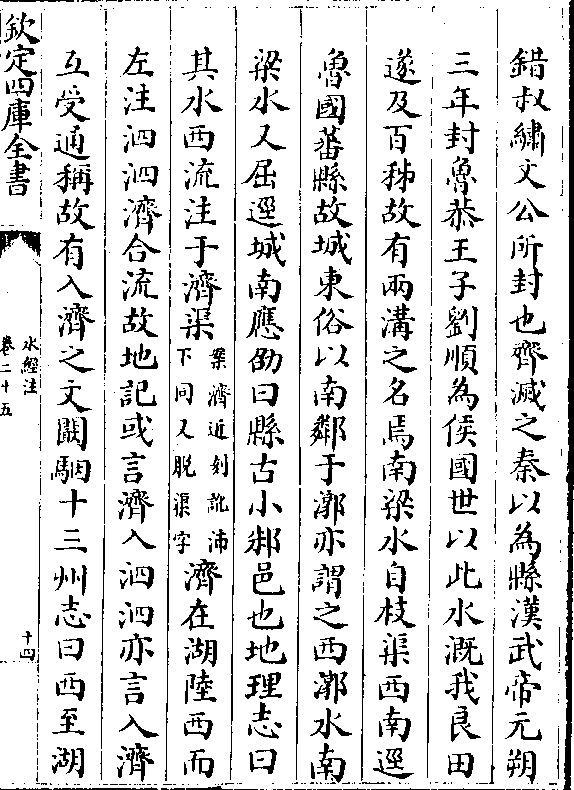 錯叔繡文公所封也齊滅之秦以為縣漢武帝元朔
三年封魯恭王子劉順為侯國世以此水溉我良田
遂及百秭故有兩溝之名焉南梁水自枝渠西南逕
魯國蕃縣故城東俗以南鄰于漷亦謂之西漷水南
梁水又屈逕城南應劭曰縣古小邾邑也地理志曰
其水西流注于濟渠案濟近刻訛沛下同又脫渠字濟在湖陸西而
左注泗泗濟合流故地記或言濟入泗泗亦言入濟
互受通稱故有入濟之文闞駰十三州志曰西至湖
欽定四庫全書
水經注
卷二十五
十四